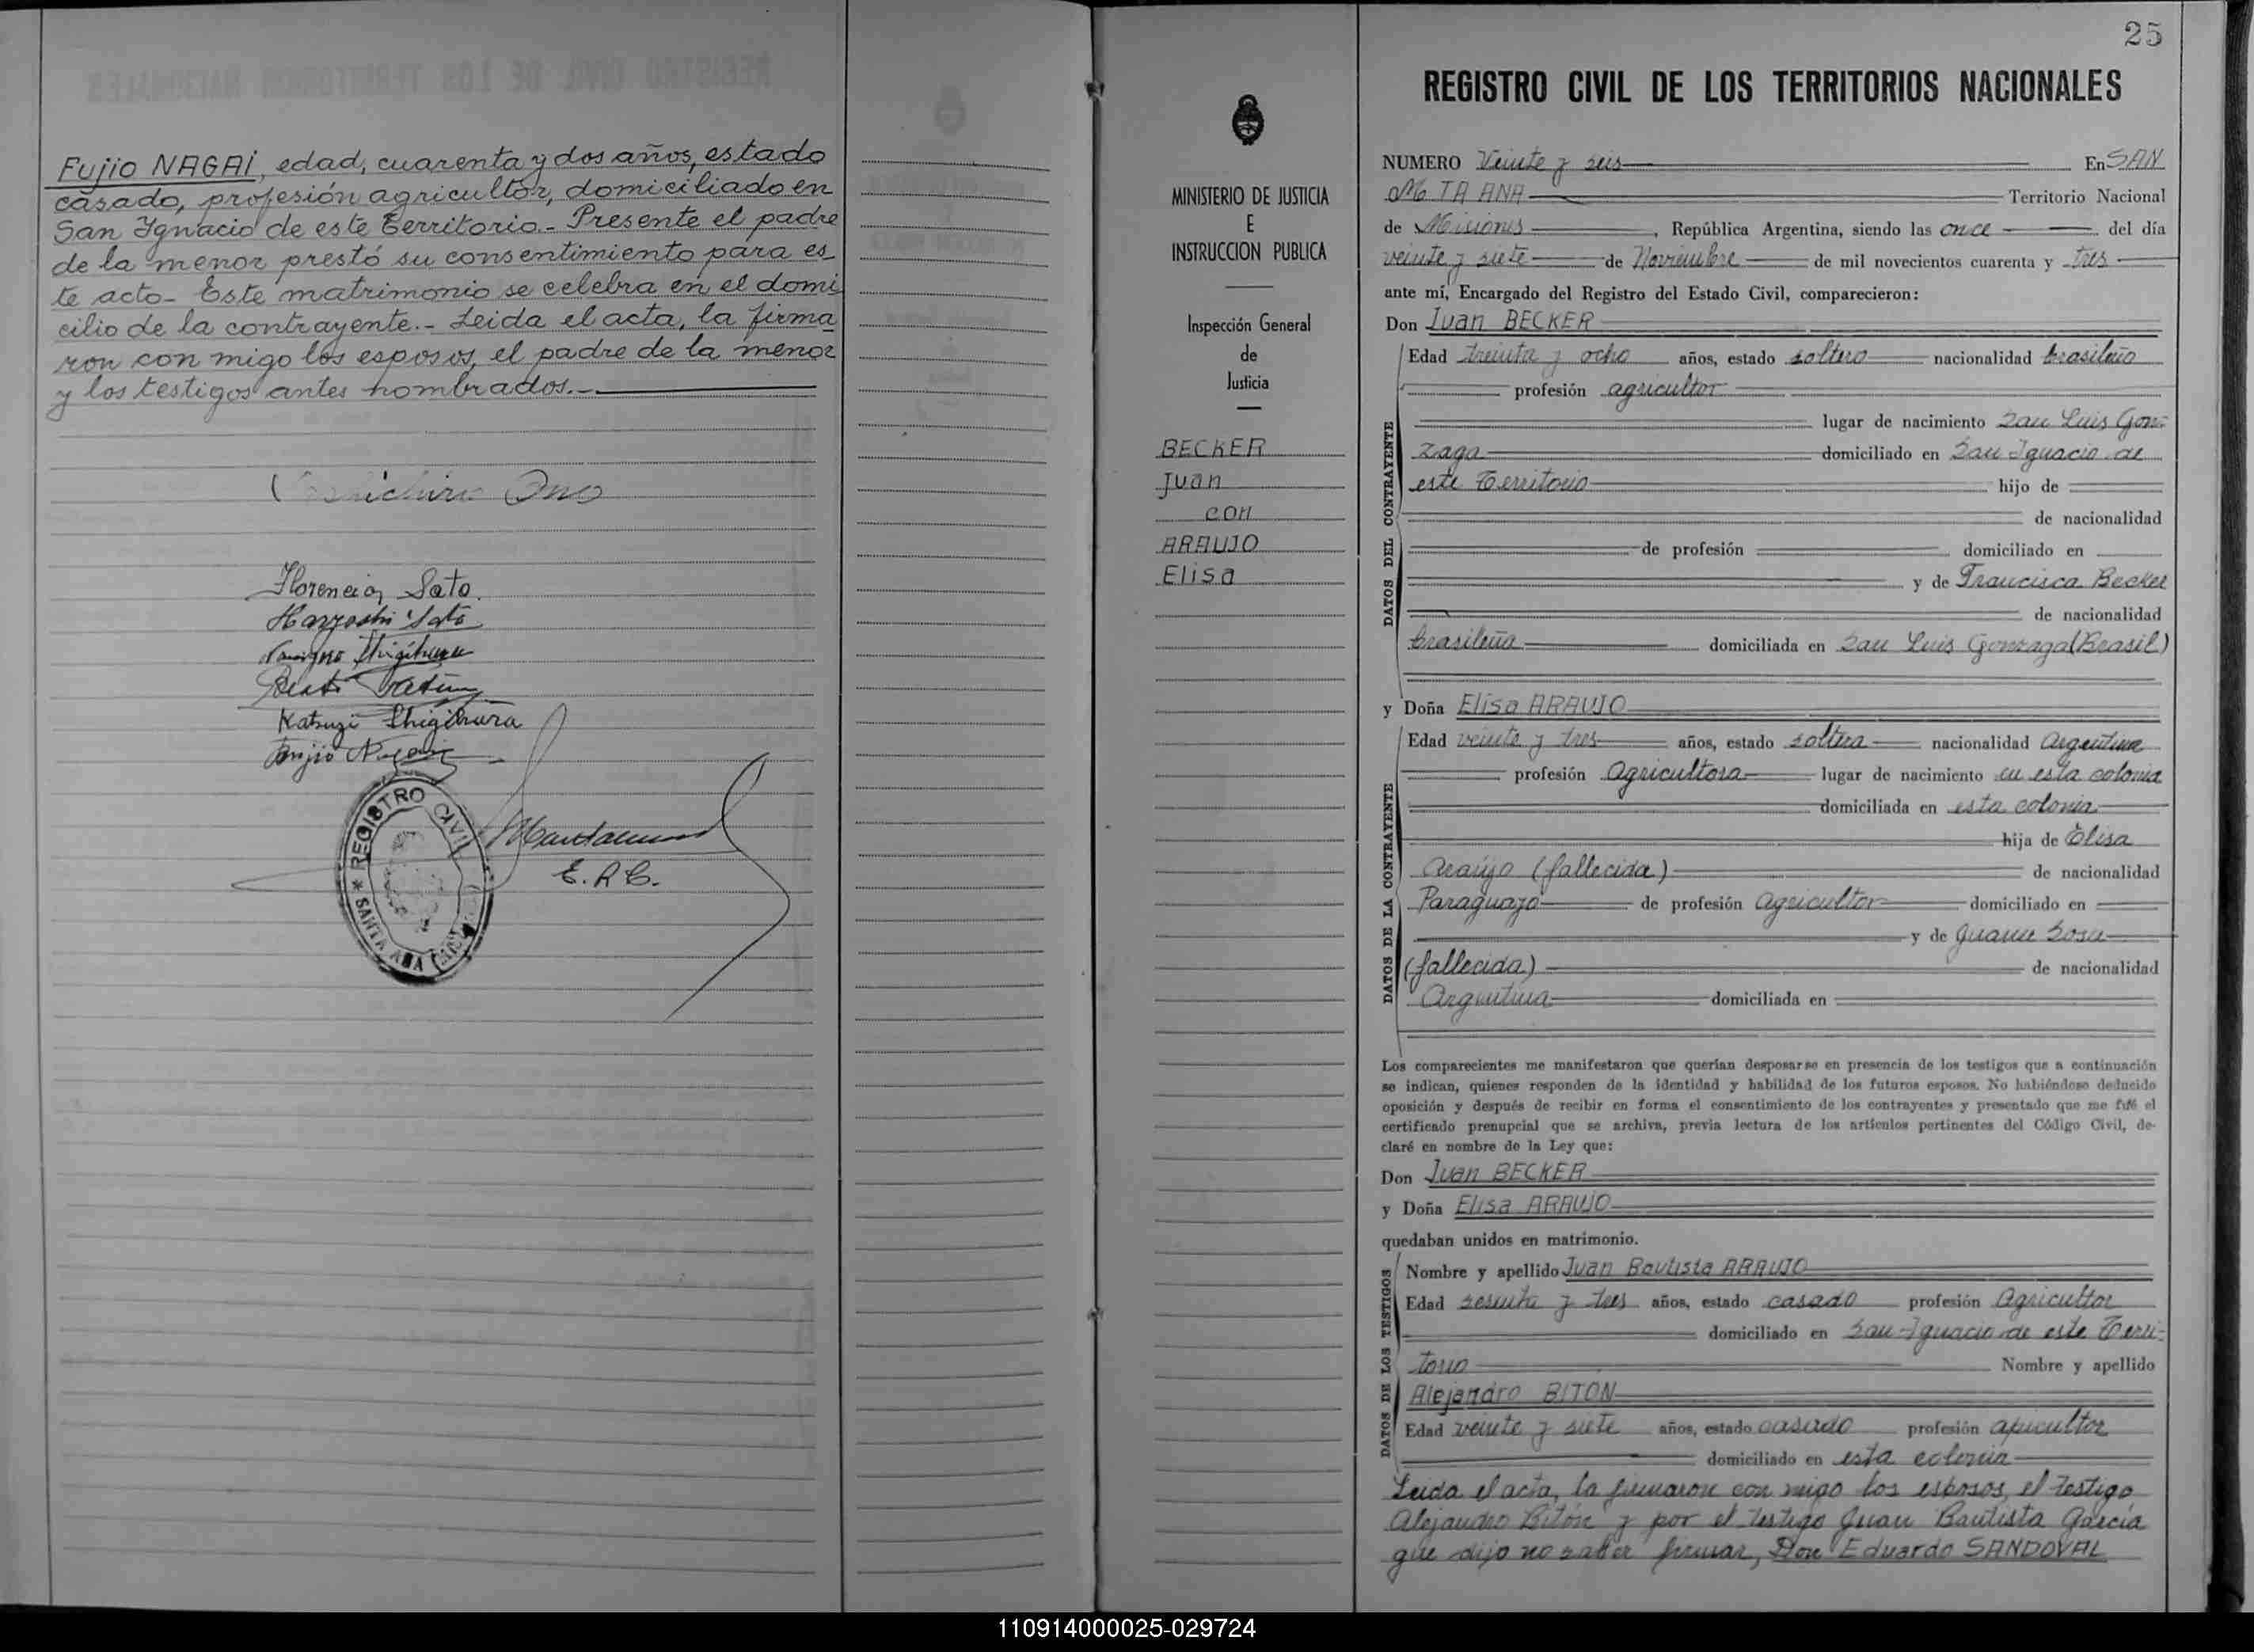 Fujio NAGAI, edad, cuarenta y dos años, estado
casado, profesión agricultor, domiciliado en
San Ygnacio de este territorio.- Presente el padre
de la menor prestó su consentimiento para es
te acto- Este matrimonio se celebra en el domi
cilio de la contrayente.- Leida el acta, la firma
ron con migo los esposos, el padre de la menor
y los testigos antes nombrados.-
Ono
Florencia Sato.
Sato
Katsuzi Shigihura
REGISTRO CIVIL
SANTA ANA
E. R. C.
MINISTERIO DE JUSTICIA
E
INSTRUCCION PUBLICA
Inspección General
de
Justicia
BECKER
Juan
con
ARAUJO
Elisa
25
REGISTRO CIVIL DE LOS TERRITORIOS NACIONALES
NUMERO Veinte y seis En SAN
TA ANA Territorio Nacional
de Misiones, República Argentina, siendo las once del día
veinte y siete de Noviembre de mil novecientos cuarenta y tres
ante mí, Encargado del Registro del Estado Civil, comparecieron:
Don Juan BECKER
DATOS DEL CONTRAYENTE
Edad treinta y ocho años, estado soltero nacionalidad brasileño
profesión agricultor
lugar de nacimiento San Luis Gon-
zaga domiciliado en San Ignacio de
este Territorio hijo de
de nacionalidad
de profesión domiciliado en
y de Francisca Becker
de nacionalidad
brasileña domiciliada en San Luis Gonzaga (Brasil)
y Doña Elisa ARAUJO
DATOS DE LA CONTRAYENTE
Edad veinte y tres años, estado soltera nacionalidad Argentina
profesión Agricultora lugar de nacimiento en esta colonia
domiciliada en esta colonia
hija de Elisa
Araujo (fallecida) de nacionalidad
Paraguayo de profesión Agricultor domiciliado en
y de Juana Sosa
(fallecida) de nacionalidad
Argentina domiciliada en
Los comparecientes me manifestaron que querían desposarse en presencia de los testigos que a continuación
se indican, quienes responden de la identidad y habilidad de los futuros esposos. No habiéndose deducido
oposición y después de recibir en forma el consentimiento de los contrayentes y presentado que me fué el
certificado prenupcial que se archiva, previa lectura de los artículos pertinentes del Código Civil, de-
claré en nombre de la Ley que:
Don Juan BECKER
y Doña Elisa ARAUJO
quedaban unidos en matrimonio.
DATOS DE LOS TESTIGOS
Nombre y apellido Juan Bautista ARAUJO
Edad sesenta y tres años, estado casado profesión Agricultor
domiciliado en San Ignacio de este Terri-
torio Nombre y apellido
Alejandro BITON
Edad veinte y siete años, estado casado profesión apicultor
domiciliado en esta colonia
Leida el acta, la firmaron con migo los esposos, el testigo
Alejandro Bitón y por el testigo Juan Bautista Garcia
que dijo no saber firmar, Don Eduardo SANDOVAL
110914000025-029724